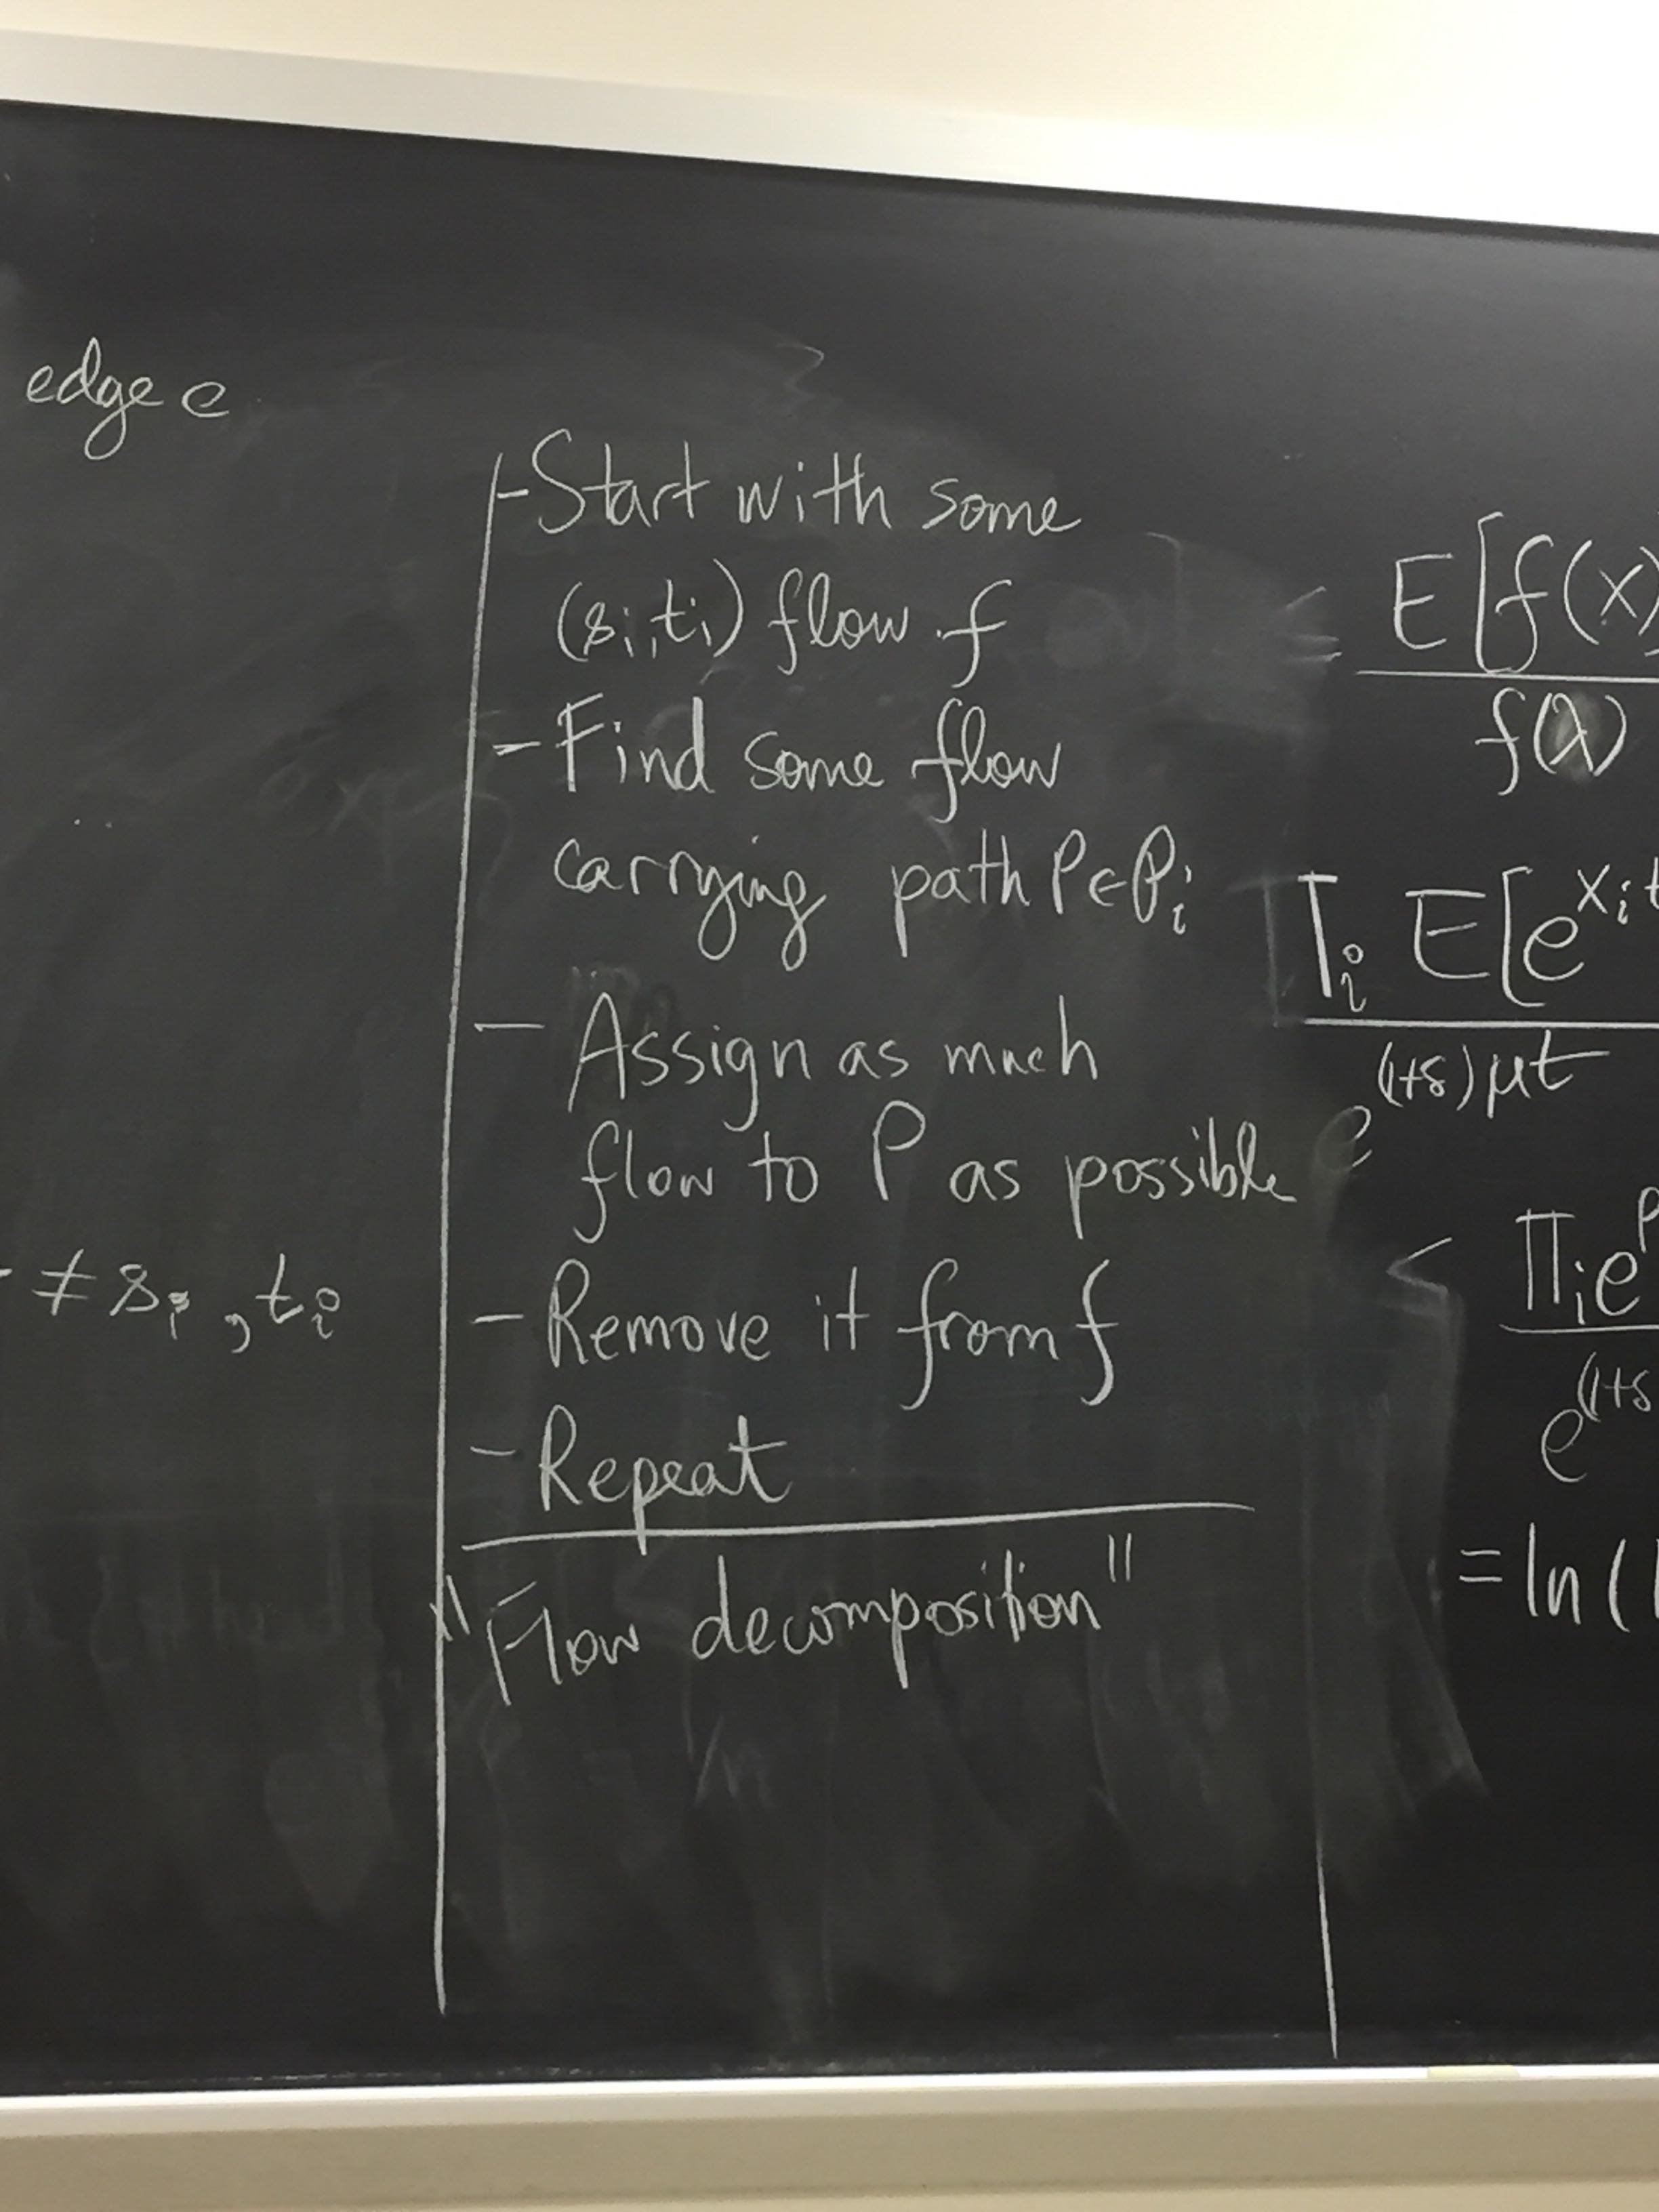 edge e
≠ si , ti
- Start with some
(si,ti) flow f
- Find some flow
carrying path P∈Pi
- Assign as much
flow to P as possible
- Remove it from f
- Repeat
"Flow decomposition"
≤ E[f(X)
f(λ)
Πi E[e^Xit
e^(1+δ)μt
< Πi e^P
e^(1+δ
= ln(1